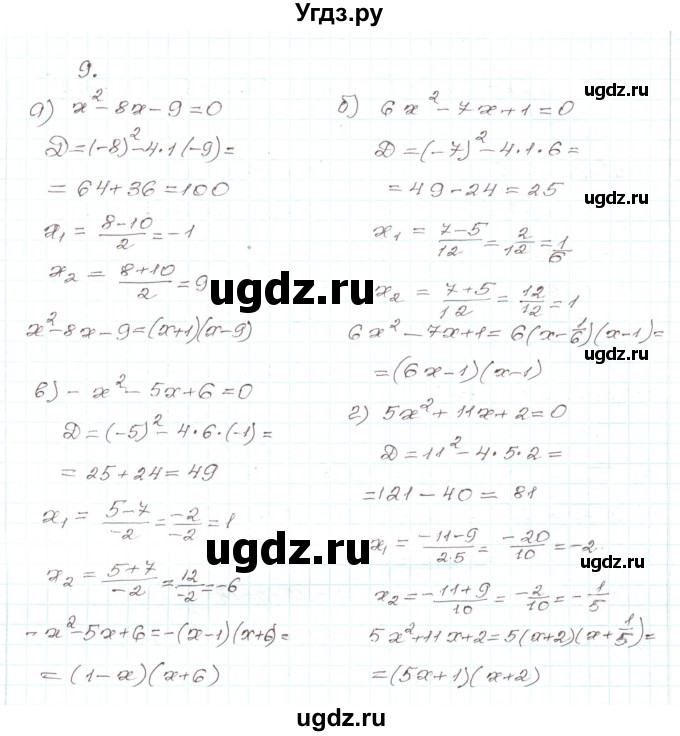 Угдз.ру
9.
а) x² - 8x - 9 = 0
D = (-8)² - 4·1(-9) =
= 64 + 36 = 100
x₁ = (8-10)/2 = -1
x₂ = (8+10)/2 = 9
x² - 8x - 9 = (x+1)(x-9)
б) 6x² - 7x + 1 = 0
D = (-7)² - 4·1·6 =
= 49 - 24 = 25
x₁ = (7-5)/12 = 2/12 = 1/6
x₂ = (7+5)/12 = 12/12 = 1
6x² - 7x + 1 = 6(x - 1/6)(x-1) =
= (6x-1)(x-1)
в) -x² - 5x + 6 = 0
D = (-5)² - 4·6·(-1) =
= 25 + 24 = 49
x₁ = (5-7)/-2 = -2/-2 = 1
x₂ = (5+7)/-2 = 12/-2 = -6
-x² - 5x + 6 = -(x-1)(x+6) =
= (1-x)(x+6)
г) 5x² + 11x + 2 = 0
D = 11² - 4·5·2 =
= 121 - 40 = 81
x₁ = (-11-9)/2·5 = -20/10 = -2
x₂ = (-11+9)/10 = -2/10 = -1/5
5x² + 11x + 2 = 5(x+2)(x + 1/5) =
= (5x+1)(x+2)
ugdz.ru
ugdz.ru
ugdz.ru
ugdz.ru
ugdz.ru
ugdz.ru
ugdz.ru
ugdz.ru